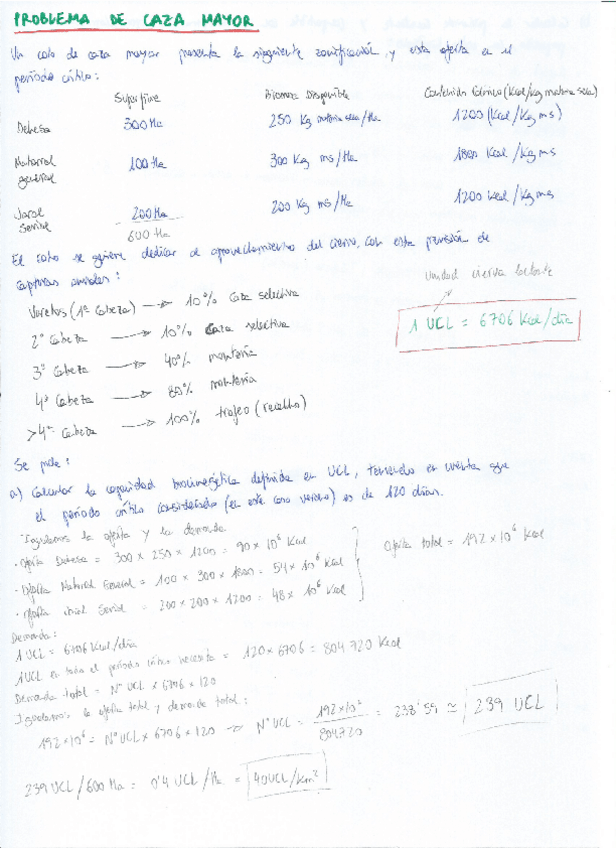 PROBLEMA DE CAZA MAYOR
Un coto de caza mayor presenta la siguiente zonificación, y esta oferta en el
período crítico:
Superficie Biomasa Disponible Contenido Calórico (Kcal/kg materia seca)
Dehesa 300 Ha 250 Kg materia seca/Ha 1200 (Kcal/Kg ms)
Matorral general 100 Ha 300 Kg ms/Ha 1800 Kcal/Kg ms
Jaral Serial 200 Ha 200 Kg ms/Ha 1200 Kcal/Kg ms
600 Ha
El coto se quiere dedicar al aprovechamiento del ciervo, con esta previsión de
capturas anuales:
Unidad cierva lactante
Varetos (1ª Cabeza) → 10% Caza selectiva
1 UCL = 6706 Kcal/día
2ª Cabeza → 10% Caza selectiva
3ª Cabeza → 40% montería
4ª Cabeza → 80% montería
>4ª Cabeza → 100% trofeo (rececho)
Se pide:
a) Calcular la capacidad bioenergética definida en UCL, teniendo en cuenta que
el período crítico considerado (en este caso verano) es de 120 días.
- Igualamos la oferta y la demanda
· Oferta Dehesa = 300 × 250 × 1200 = 90 × 10⁶ Kcal
· Oferta Matorral General = 100 × 300 × 1800 = 54 × 10⁶ Kcal
· Oferta Jaral Serial = 200 × 200 × 1200 = 48 × 10⁶ Kcal
Oferta total = 192 × 10⁶ Kcal
Demanda:
1 UCL = 6706 Kcal/día
1 UCL en todo el período crítico necesita = 120 × 6706 = 804720 Kcal
Demanda total = Nº UCL × 6706 × 120
Igualamos la oferta total y demanda total:
192 × 10⁶ = Nº UCL × 6706 × 120 → Nº UCL = 192 × 10⁶ / 804720 = 238'59 ≃ 239 UCL
239 UCL/600 Ha = 0'4 UCL/Ha = 40 UCL/km²